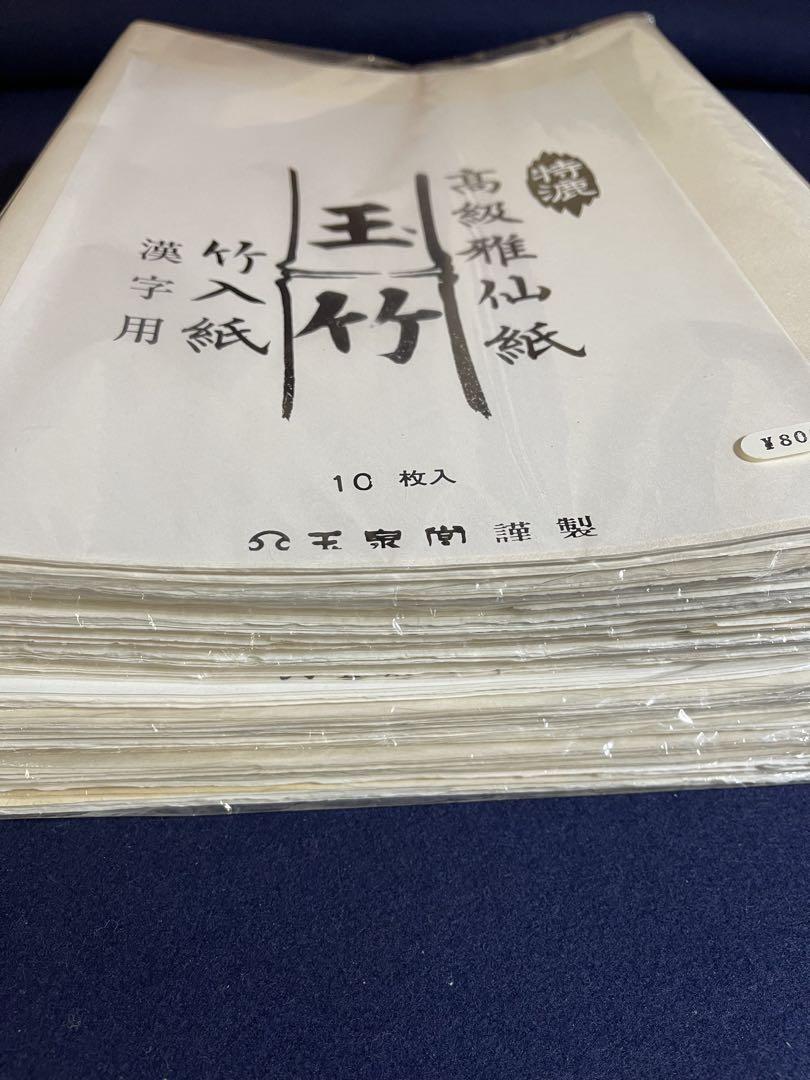 特漉
高級雅仙紙
玉竹
竹入紙
漢字用
¥80
10 枚入
玉泉堂謹製